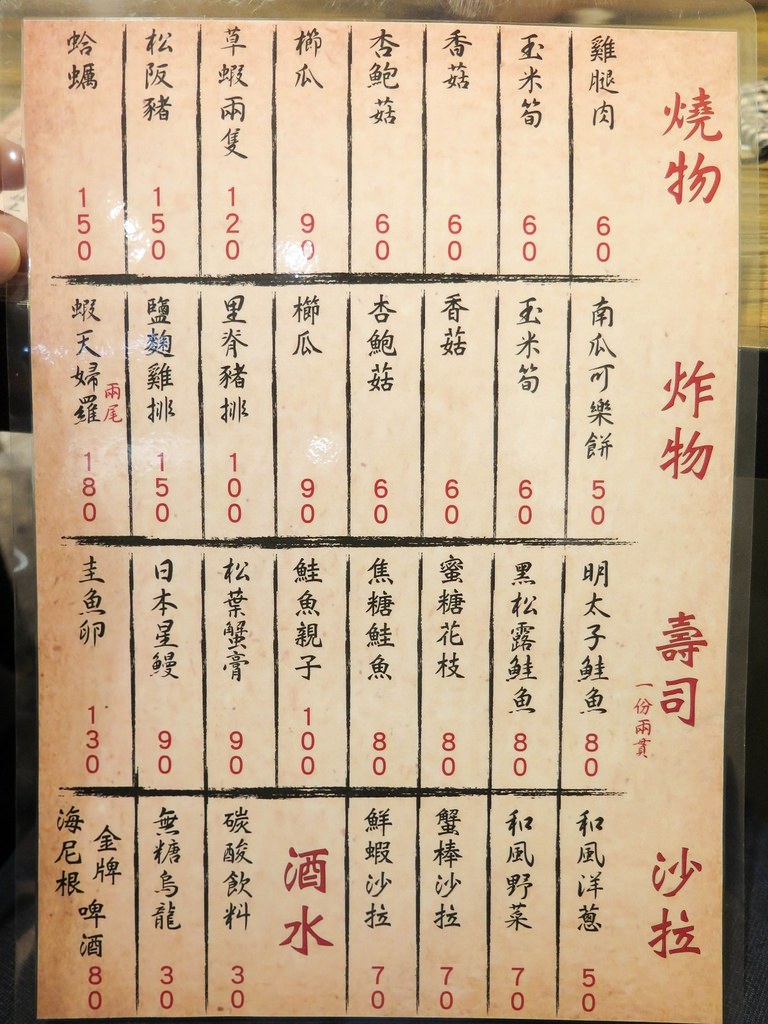 燒物
雞腿肉 60
玉米筍 60
香菇 60
杏鮑菇 60
櫛瓜 90
草蝦兩隻 120
松阪豬 150
蛤蠣 150
炸物
南瓜可樂餅 50
玉米筍 60
香菇 60
杏鮑菇 60
櫛瓜 90
里脊豬排 100
鹽麴雞排 150
蝦天婦羅 兩尾 180
壽司
一份兩貫
明太子鮭魚 80
黑松露鮭魚 80
蜜糖花枝 80
焦糖鮭魚 80
鮭魚親子 100
松葉蟹膏 90
日本星鰻 90
圭魚卵 130
沙拉
和風洋蔥 50
和風野菜 70
蟹棒沙拉 70
鮮蝦沙拉 70
酒水
碳酸飲料 30
無糖烏龍 30
金牌
海尼根
啤酒 80